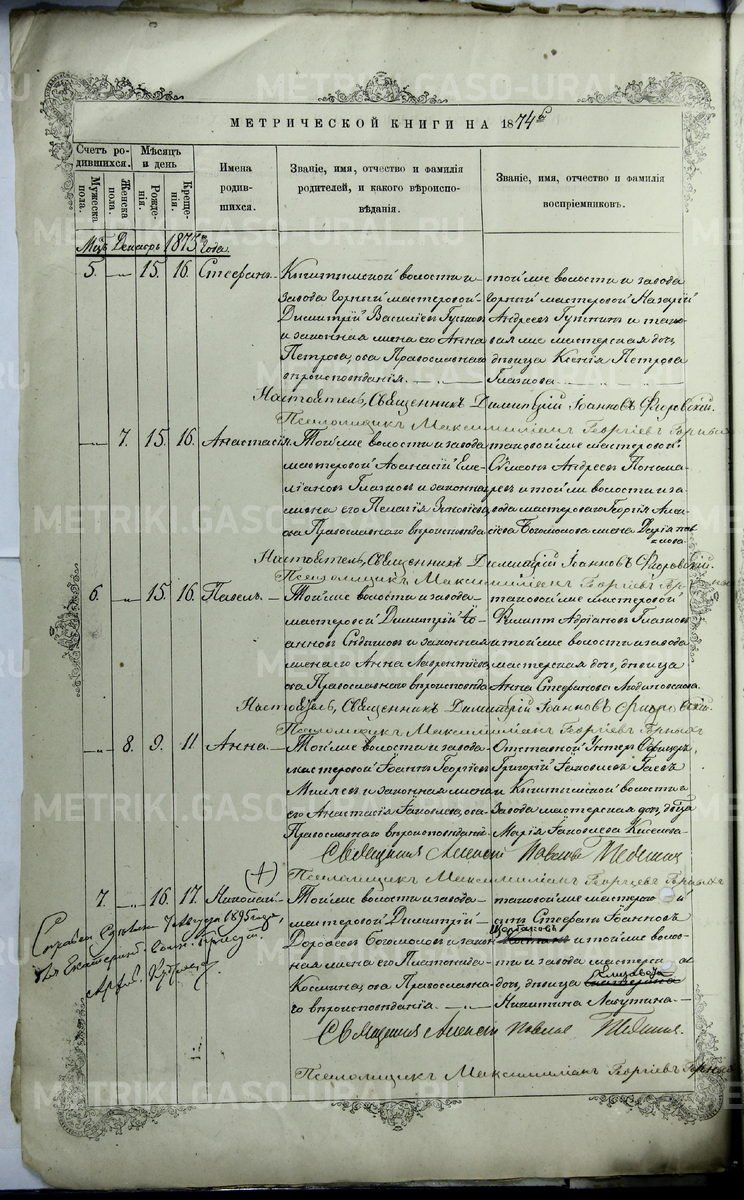 МЕТРИЧЕСКОЙ КНИГИ НА 1874
Счетъ родившихся.
Мѣсяцъ и день
Имена родившихся.
Званіе, имя, отчество и фамилія родителей, и какого вѣроисповѣданія.
Званіе, имя, отчество и фамилія воспріемниковъ.
Мужеска пола.
Женска пола.
Рожденія.
Крещенія.
Мцъ Декабрь 1875 года
5. 15. 16. Стефанъ.
Кыштымской волости и
завода Горный мастеровой
Димитрій Василіевъ
и законная жена его Анна
Петрова, оба Православнаго
вѣроисповѣданія.
той же волости и завода
горный мастеровой Назарій
Андреевъ и тако
вая же мастерская дочь,
дѣвица Ксенія Петрова
Глазкова.
Настоятель, Священникъ Димитрій Іоанновъ Флоровскій.
Псаломщикъ Максимиліанъ Георгіевъ
7. 15. 16. Анастасія.
Той же волости и завода
мастеровой Аѳанасій Еме-
ліановъ Глазковъ и законна
жена его Пелагія
оба Православнаго вѣроисповѣда
таковой же мастеровой
Сѵмеонъ Андреевъ Понома-
ревъ и той же волости и за-
вода мастероваго Георгія
Богомолова жена Дарія
Настоятель, Священникъ Димитрій Іоанновъ Флоровскій.
Псаломщикъ Максимиліанъ Георгіевъ
6. 15. 16. Павелъ.
Той же волости и завода
мастеровой Димитрій Іо-
анновъ и законная
жена его Анна Лаврентіева,
оба Православнаго вѣроисповѣда
таковой же мастеровой
Филиппъ Адріановъ Глазковъ
и той же волости и завода
мастерская дочь, дѣвица
Анна Стефанова
Настоятель, Священникъ Димитрій Іоанновъ Флоровскій.
Псаломщикъ Максимиліанъ Георгіевъ
8. 9. 11. Анна.
Той же волости и завода
мастеровой Іоаннъ Георгіевъ
и законная жена
его Анастасія Іаковлева, оба
Православнаго вѣроисповѣданія
Отставной Унтеръ Офицеръ
Григорій Іаковлевъ
и Кыштымской волости и
завода мастерская дочь, дѣвица
Марія Іаковлева Киселева
Священникъ Алексій Павловъ
Псаломщикъ Максимиліанъ Георгіевъ
7. 16. 17. Николай
Той же волости и завода
мастеровой Димитрій
Дороѳеевъ Богомоловъ и закон
ная жена его Платонида
Космина, оба Православна
го вѣроисповѣданія.
таковой же мастерово й
сынъ Стефанъ Іоанновъ
и той же воло-
сти и завода мастерск ая
дочь, дѣвица Елизавета
Никитина Лабутина
Священникъ Алексій Павловъ
Псаломщикъ Максимиліанъ Георгіевъ
7 Августа 1895 года,
METRIKI.GASO-URAL.RU